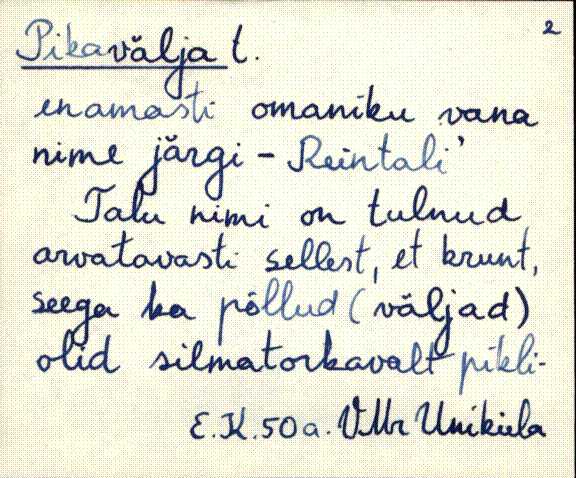 2
Pikavälja t.
enamasti omaniku vana
nime järgi - Reintali'
Talu nimi on tulnud
arvatavasti sellest, et krunt,
seega ka põllud (väljad)
olid silmatorkavalt pikli-
E.K. 50 a. VMr Uniküla